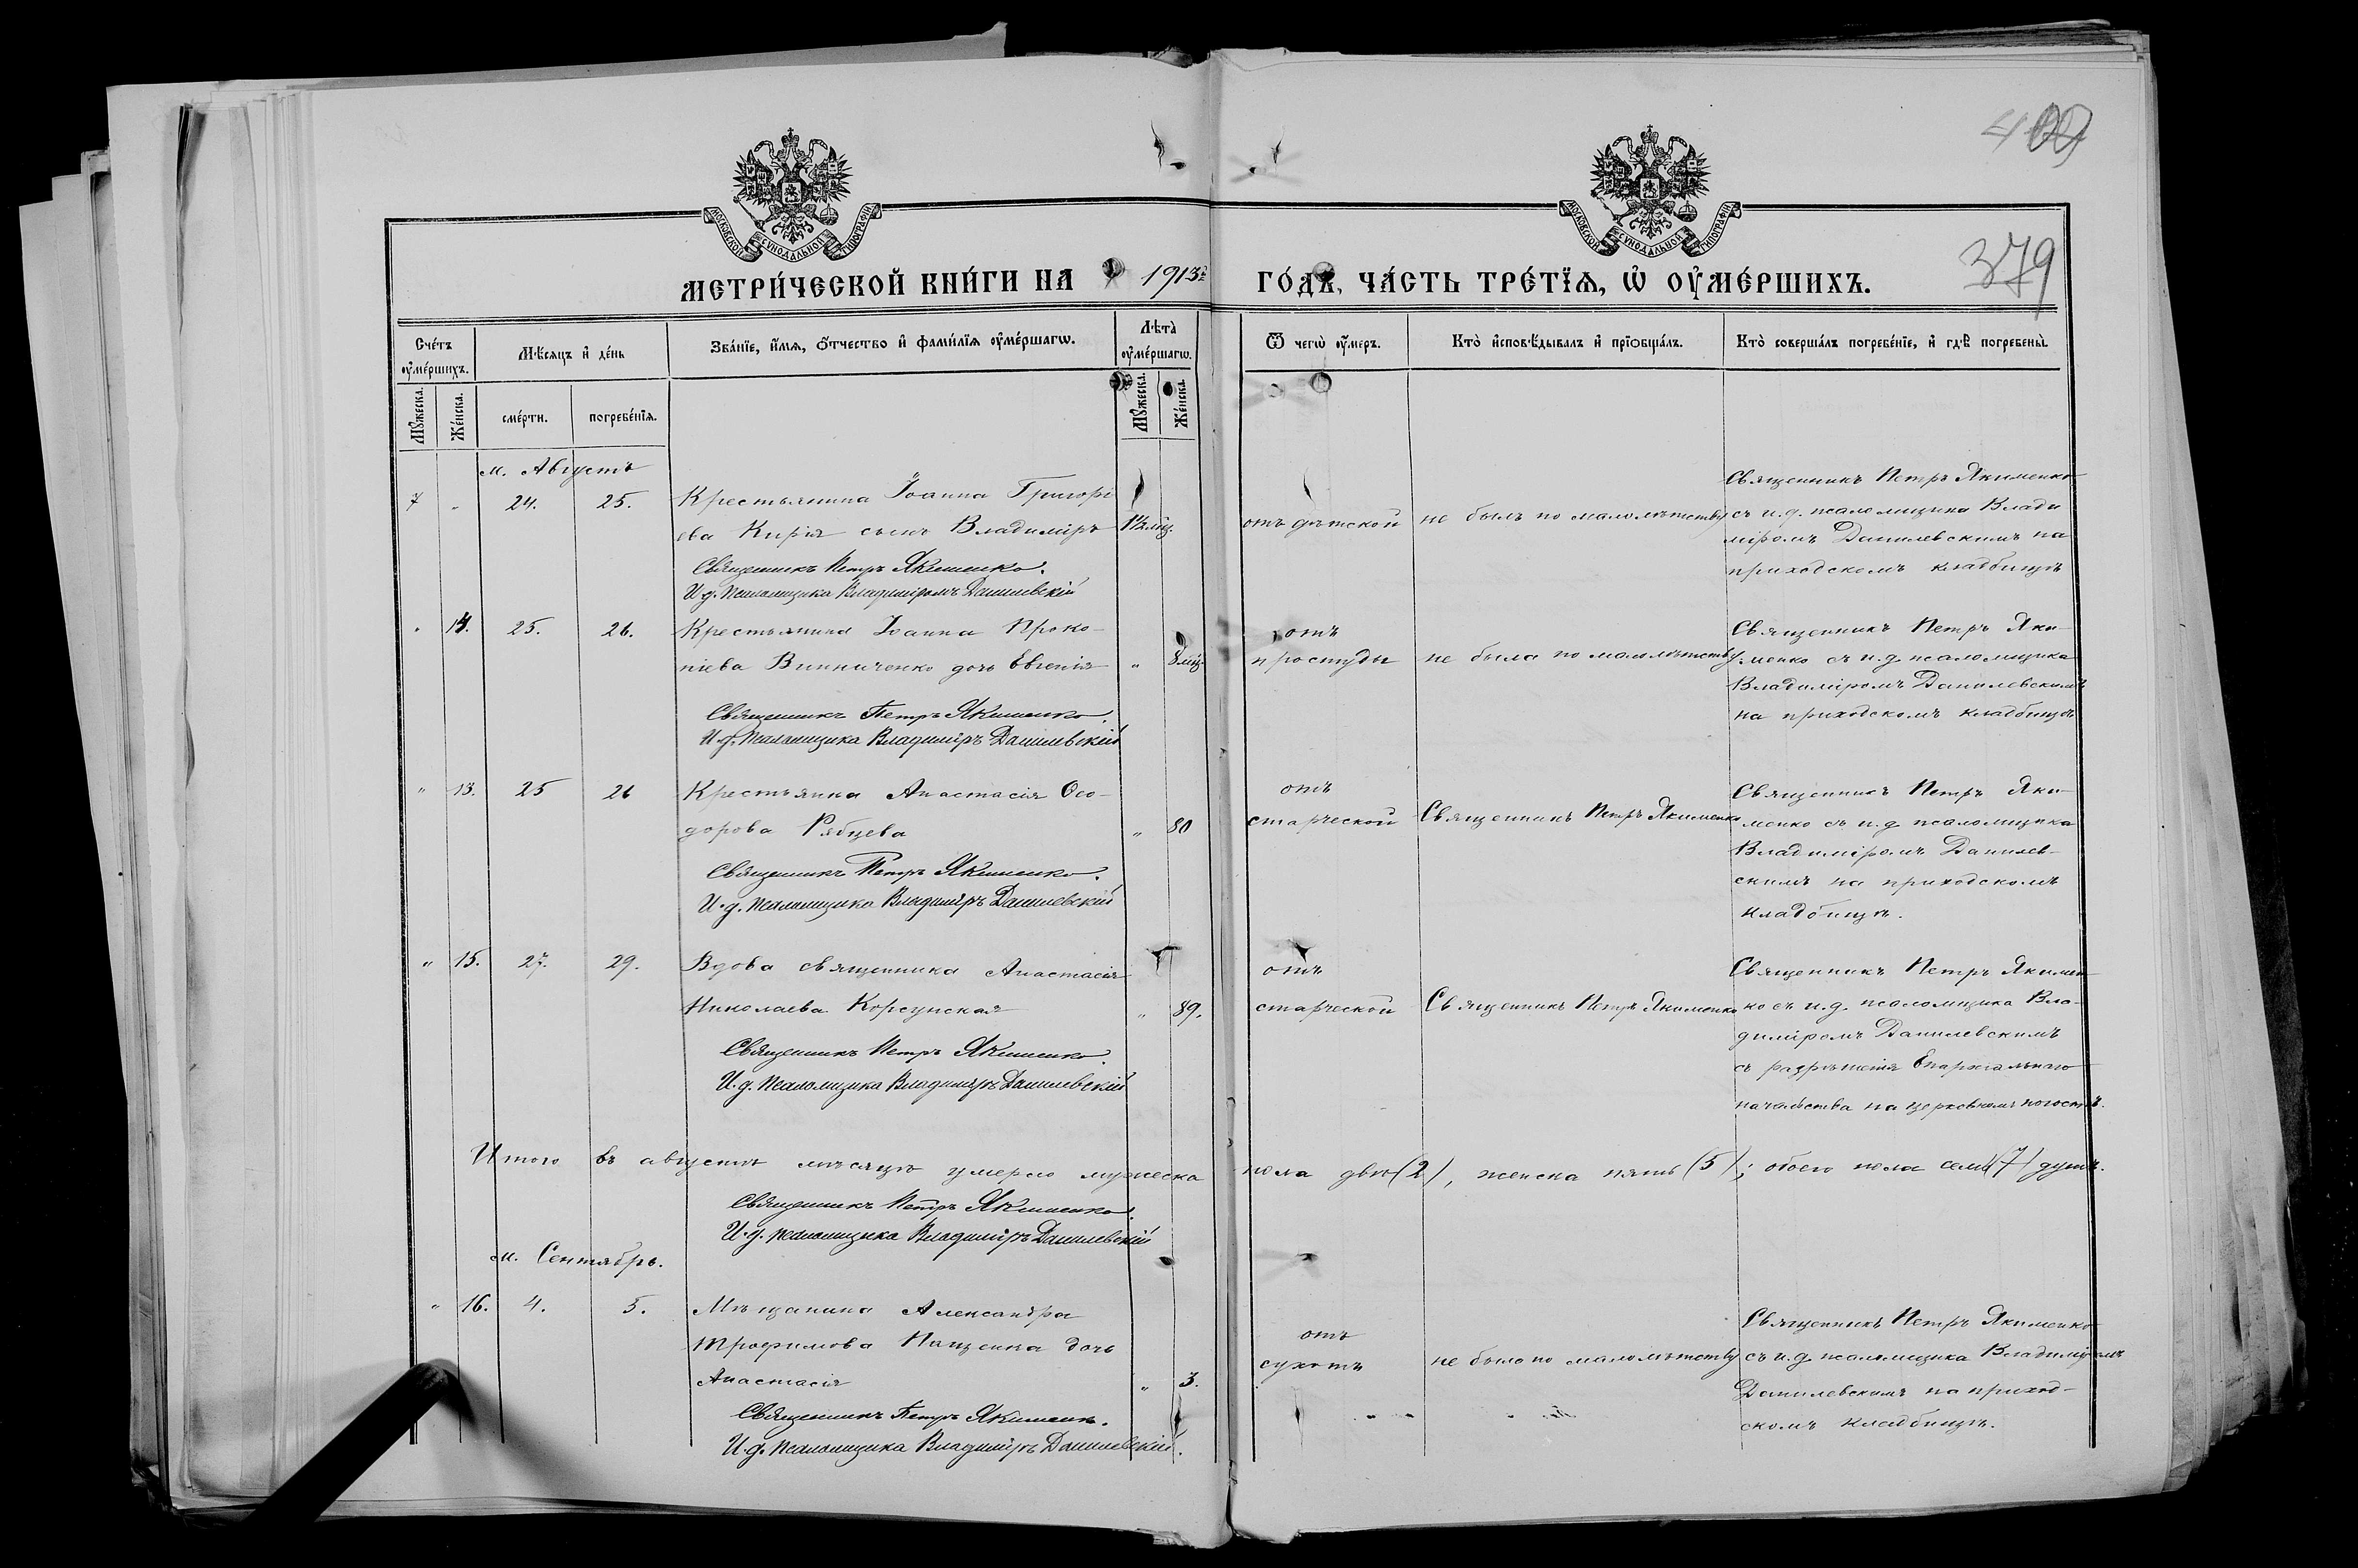 400
МОСКОВСКОЙ СУНОДАЛЬНОЙ ТИПОГРАФІИ
МОСКОВСКОЙ СУНОДАЛЬНОЙ ТИПОГРАФІИ
379
МЕТРИ́ЧЕСКОЙ КНИ́ГИ НА 1913й ГО́ДЪ, ЧА́СТЬ ТРЕ́ТЇѦ, Ѡ҆ ОУ҆МЕ́РШИХЪ.
Сче́тъ оу҆ме́ршихъ.
Мѣ́сѧцъ и҆ де́нь
Зва́нїе, и҆́мѧ, ѻ҆́тчество и҆ фами́лїѧ оу҆ме́ршагѡ.
Лѣта̀ оу҆ме́ршагѡ.
Ѿ чегѡ̀ оу҆́меръ.
Кто̀ и҆сповѣ́дывалъ и҆ прїѻбща́лъ.
Кто̀ соверша́лъ погребе́нїе, и҆ гдѣ̀ погребены̀.
Мꙋ́жеска.
Же́нска.
сме́рти.
погребе́нїѧ.
Мꙋ́жеска.
Же́нска.
м. Августъ
7 " 24. 25. Крестьянина Іоанна Григорі
ева Кирія сынъ Владиміръ 1½ мц.
Священникъ Петръ Якименко.
И д. Псаломщика Владиміромъ Данилевскій
отъ дѣтской
не былъ по малолѣтству
Священникъ Петръ Якименко
съ и.д. псаломщика Влади
міромъ Данилевскимъ на
приходскомъ кладбищѣ
" 25. 26. Крестьянина Іоанна Проко-
піева Винниченко дочь Евгенія " 8 мц.
Священникъ Петръ Якименко.
И.д. Псаломщика Владиміръ Данилевскій
отъ
простуды
не была по малолѣтству
Священникъ Петръ Яки-
менко съ и.д. псаломщика
Владиміромъ Данилевскимъ
на приходскомъ кладбищѣ
" 13. 25 26 Крестьянка Анастасія Ѳео-
дорова Рябцева " 80
Священникъ Петръ Якименко.
И.д. Псаломщика Владиміръ Данилевскій
отъ
старческой
Священникъ Петръ Якименко
Священникъ Петръ Яки-
менко съ и.д. псаломщика
Владиміромъ Данилев-
скимъ на приходскомъ
кладбищѣ.
" 15. 27. 29. Вдова священника Анастасія
Николаева Корсунская " 89.
Священникъ Петръ Якименко.
И.д. Псаломщика Владиміръ Данилевскій
отъ
старческой
Священникъ Петръ Якименко
Священникъ Петръ Якимен
ко съ и.д. псаломщика Вла-
диміромъ Данилевскимъ
съ разрѣшенія Епархіальнаго
начальства на церковномъ погостѣ.
Итого въ августѣ мѣсяцѣ умерло мужеска пола два (2), женска пять (5); обоего пола семь (7) душъ.
Священникъ Петръ Якименко.
И.д. Псаломщика Владиміръ Данилевскій
м. Сентябрь.
" 16. 4. 5. Мѣщанина Александра
Трофимова Пащенка дочь
Анастасія " 3.
Священникъ Петръ Якименко.
И.д. Псаломщика Владиміръ Данилевскій.
отъ
сухотъ
не было по малолѣтству
Священникъ Петръ Якименко
съ и.д. псаломщика Владиміромъ
Данилевскимъ на приход-
скомъ кладбищѣ.